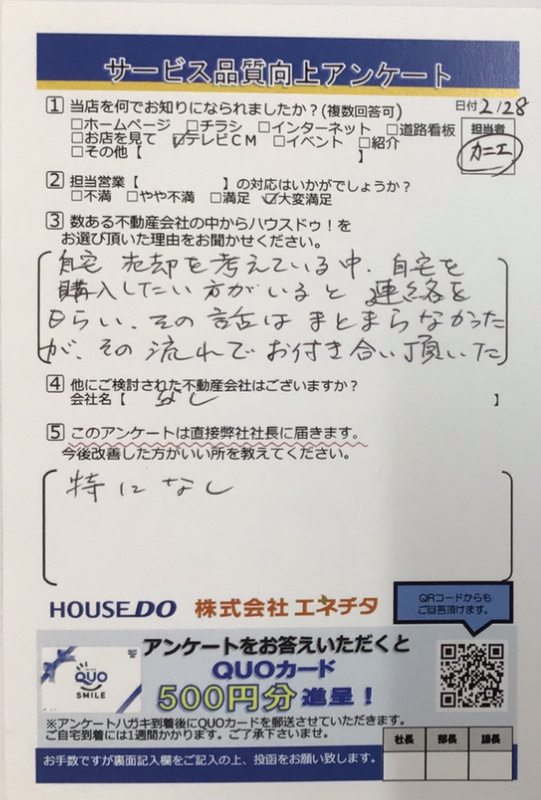 サービス品質向上アンケート
1 当店を何でお知りになられましたか?(複数回答可)
日付 2/28
□ホームページ □チラシ □インターネット □道路看板
□お店を見て ☑テレビCM □イベント □紹介
□その他【 】
担当者
カニエ
2 担当営業【 】の対応はいかがでしょうか?
□不満 □やや不満 □満足 ☑大変満足
3 数ある不動産会社の中からハウスドゥ!を
お選び頂いた理由をお聞かせください。
自宅 売却を考えている中、自宅を
購入したい方がいると 連絡を
もらい、その話は まとまらなかった
が、その流れで お付き合い頂いた
4 他にご検討された不動産会社はございますか?
会社名【 なし 】
5 このアンケートは直接弊社社長に届きます。
今後改善した方がいい所を教えてください。
特に なし
HOUSEDO 株式会社 エネチタ
QRコードからも
ご回答頂けます。
アンケートをお答えいただくと
QUOカード
500円分 進呈!
QUO
SMILE
※アンケートハガキ到着後にQUOカードを郵送させていただきます。
ご自宅到着には1週間かかります。ご了承下さいませ。
お手数ですが裏面記入欄をご記入の上、投函をお願い致します。
社長 部長 課長